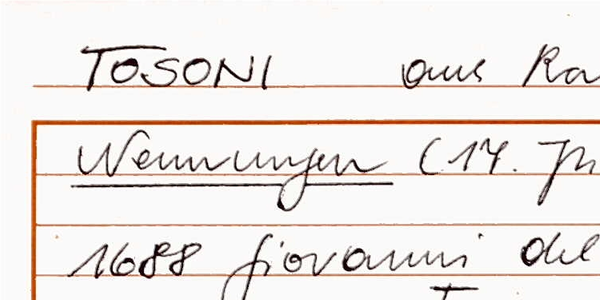 TOSONI aus Ra
Nennungen (17. Jh
1688 Giovanni del